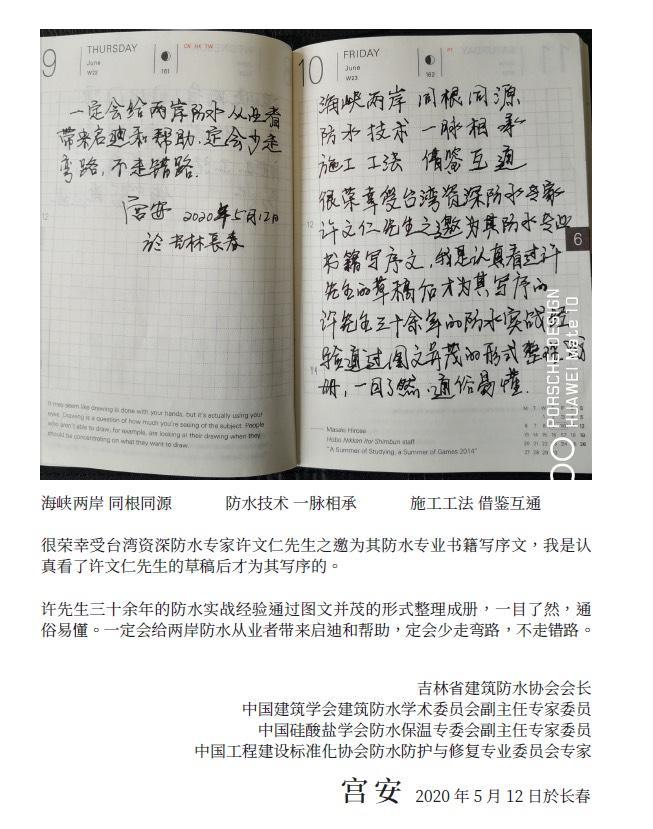 9
THURSDAY
June
W22
161
CN HK TW
一定会给两岸防水从业者
带来启迪和帮助.定会少走
弯路,不走错路.
宫安 2020年5月12日
於吉林長春
It may seem like drawing is done with your hands, but it's actually using your
eyes. Drawing is a question of how much you're seeing of the subject. People
who aren't able to draw, for example, are looking at their drawing when they
should be concentrating on what they want to draw.
10
FRIDAY
June
W23
162
海峡两岸 同根同源
防水技术 一脉相承
施工工法 借鉴互通
很荣幸受台湾资深防水专家
许文仁先生之邀为其防水专业
书籍写序文,我是认真看过许
先生的草稿后才为其写序的
许先生三十余年的防水实战经
验通过图文并茂的形式整理成
册,一目了然.通俗易懂.
6
Masako Hirose
Hobo Nikkan Itoi Shimbun staff
"A Summer of Studying, a Summer of Games 2014"
PORSCHE DESIGN
HUAWEI Mate 10
海峡两岸 同根同源 防水技术 一脉相承 施工工法 借鉴互通
很荣幸受台湾资深防水专家许文仁先生之邀为其防水专业书籍写序文,我是认
真看了许文仁先生的草稿后才为其写序的。
许先生三十余年的防水实战经验通过图文并茂的形式整理成册,一目了然,通
俗易懂。一定会给两岸防水从业者带来启迪和帮助,定会少走弯路,不走错路。
吉林省建筑防水协会会长
中国建筑学会建筑防水学术委员会副主任专家委员
中国硅酸盐学会防水保温专委会副主任专家委员
中国工程建设标准化协会防水防护与修复专业委员会专家
宫安 2020 年 5 月 12 日於长春